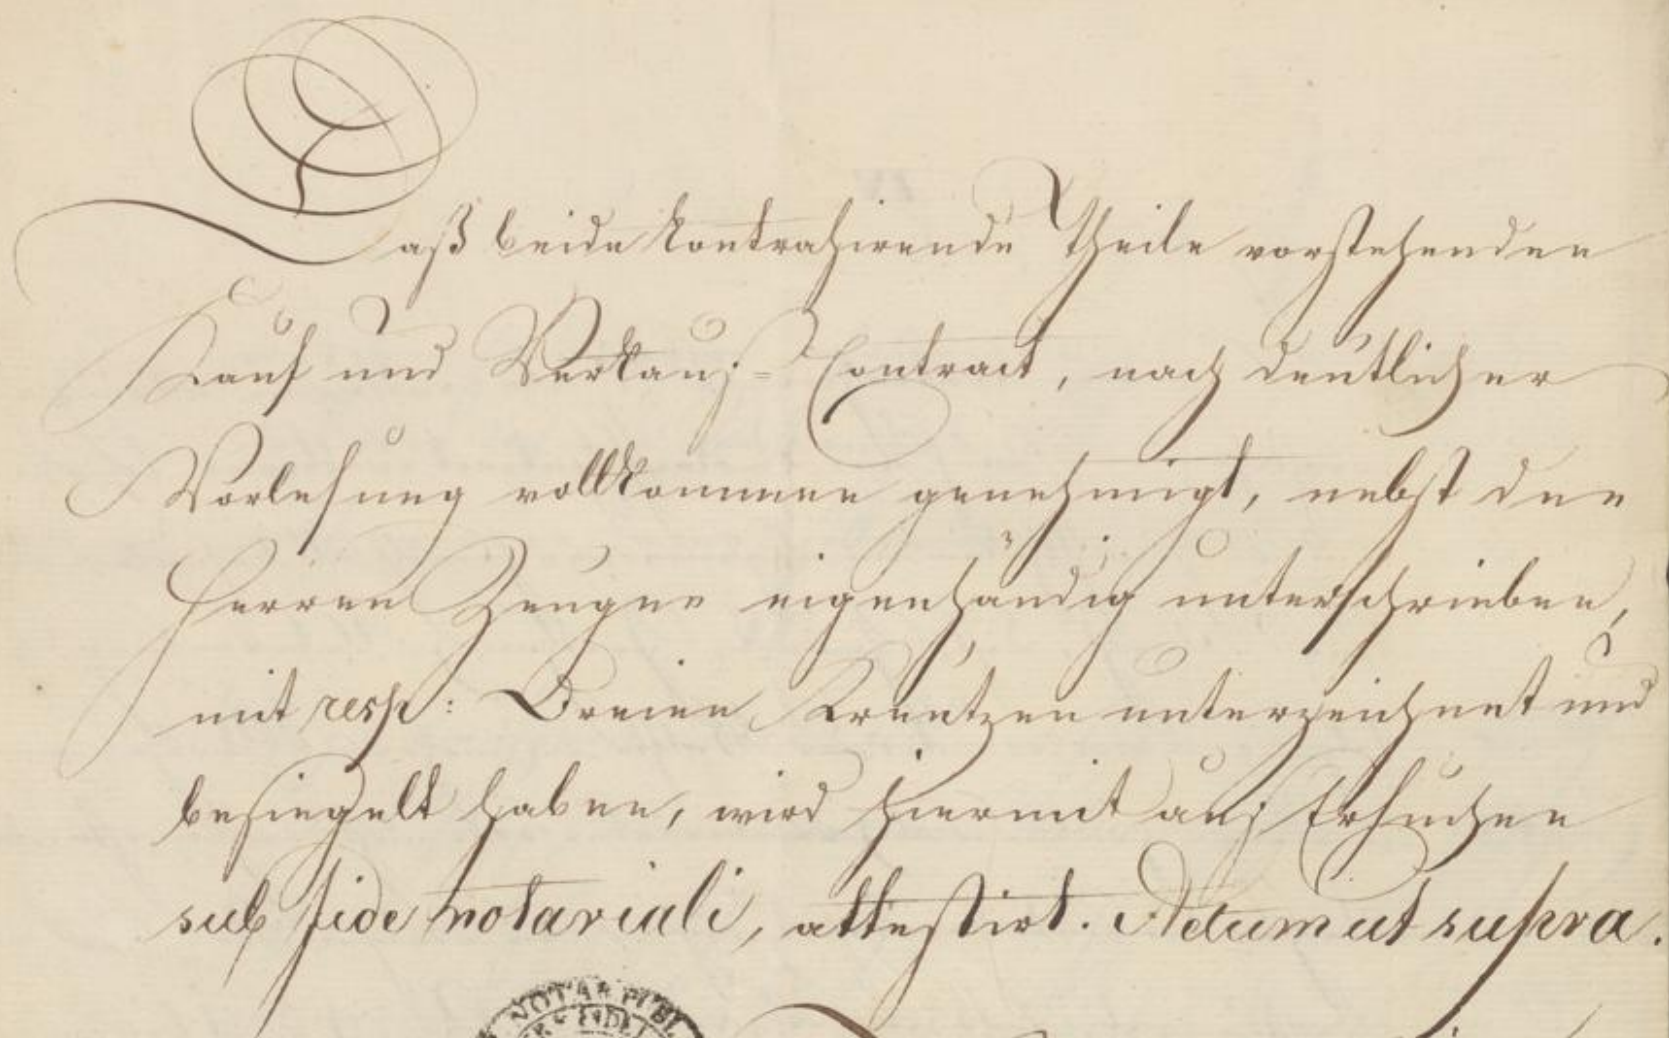 Daß beide kontrahirende Theile vorstehenden
Kauf und Verkauf=Contract, nach deutlicher
Vorlesung vollkommen genehmigt, nebst den
Herren Zeugen eigenhändig unterschrieben,
mit resp: Dreien Kreutzen unterzeichnet und
besiegelt haben, wird hiermit auf Ersuchen
sub fide notariali, attestirt. Actum ut supra.
NOTAR PUBL
FIDE